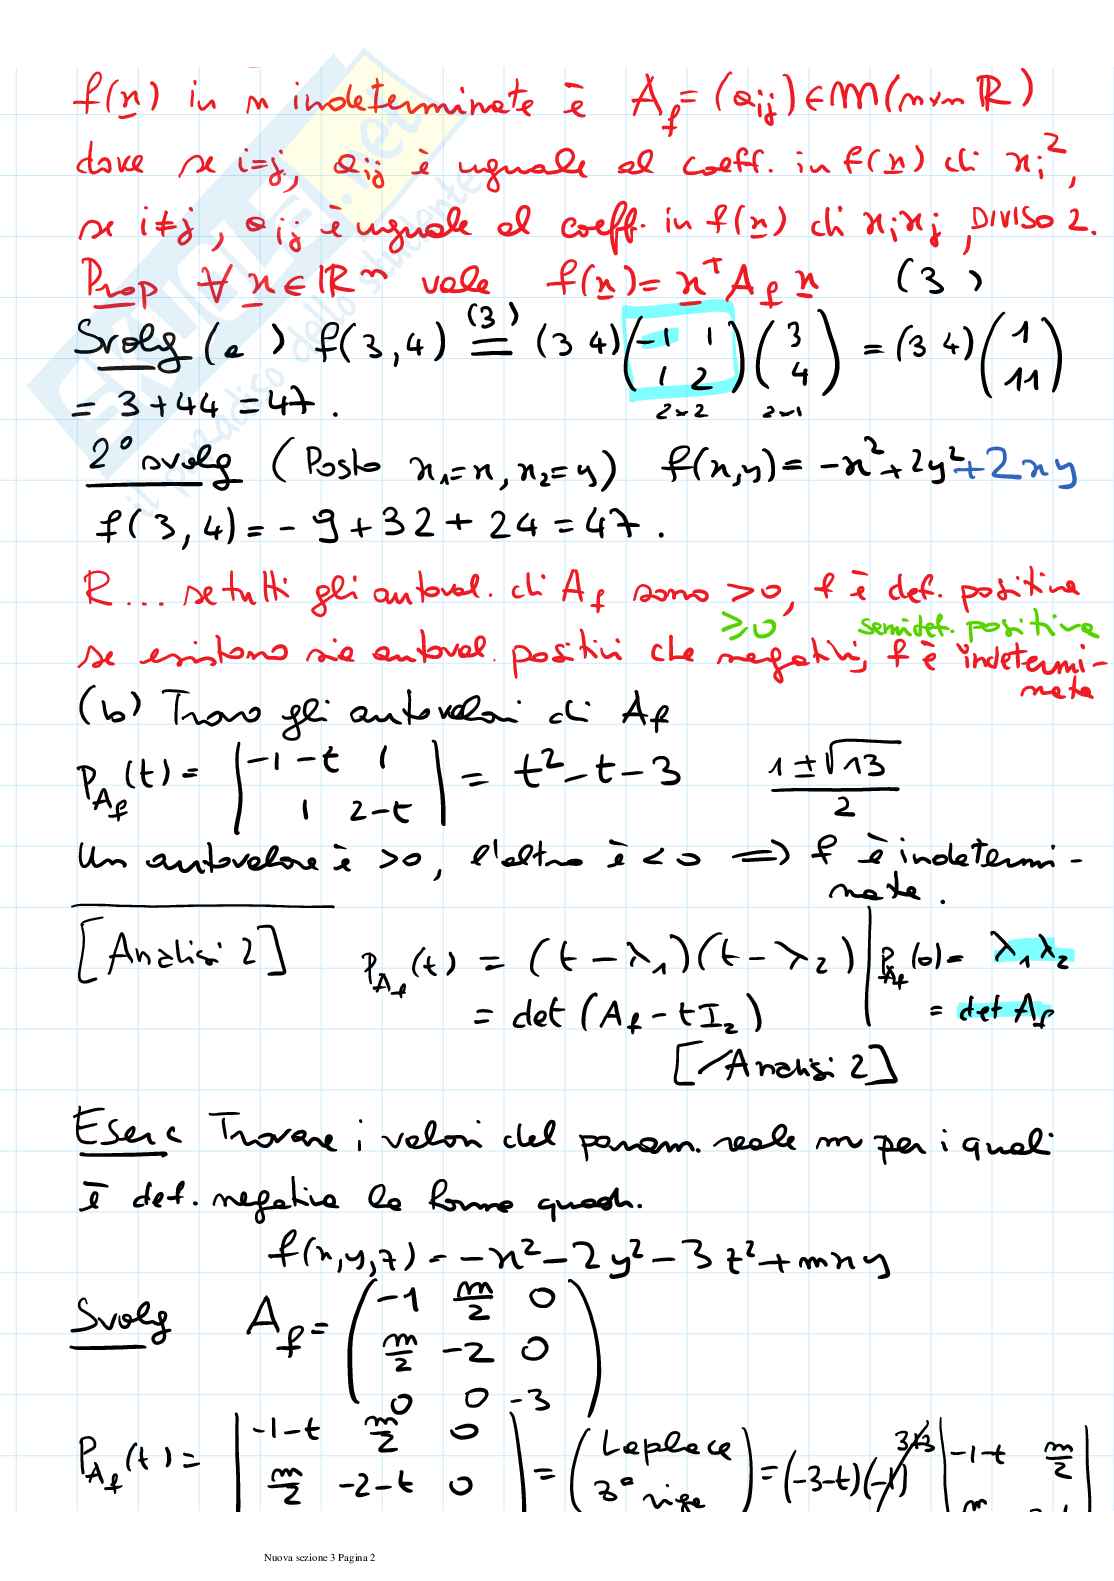 f(x) in n indeterminate è A_f = (a_ij) ∈ M(n×n ℝ)
dove se i=j, a_ij è uguale al coeff. in f(x) di x_i²,
se i≠j, a_ij è uguale al coeff. in f(x) di x_i x_j, DIVISO 2.
Prop ∀ x ∈ ℝⁿ vale f(x) = xᵀ A_f x (3)
Svolg (a) f(3,4) =(3) (3 4) (-1 1 / 1 2) (3 / 4) = (3 4) (1 / 11)
2×2 2×1
= 3+44 = 47.
2° svolg (Posto x₁=x, x₂=y) f(x,y) = -x²+2y²+2xy
f(3,4) = -9+32+24 = 47.
R... se tutti gli autoval. di A_f sono >0, f è def. positiva
≥0 semidef. positiva
se esistono sia autoval. positivi che negativi, f è indetermi-
nata
(b) Trovo gli autovalori di A_f
P_{A_f}(t) = |-1-t 1 / 1 2-t| = t²-t-3 (1±√13)/2
Un autovalore è >0, l'altro è <0 ⟹ f è indetermi-
nata.
[Analisi 2] P_{A_f}(t) = (t-λ₁)(t-λ₂) | P_{A_f}(0) = λ₁λ₂
= det (A_f - tI₂) = det A_f
[/Analisi 2]
Eserc Trovare i valori del param. reale m per i quali
è def. negativa la forma quadr.
f(x,y,z) = -x²-2y²-3z²+mxy
Svolg A_f = (-1 m/2 0 / m/2 -2 0 / 0 0 -3)
P_{A_f}(t) = |-1-t m/2 0 / m/2 -2-t 0| = (Laplace 3° riga) = (-3-t)(-1)³⁺³ |-1-t m/2 / m
Nuova sezione 3 Pagina 2